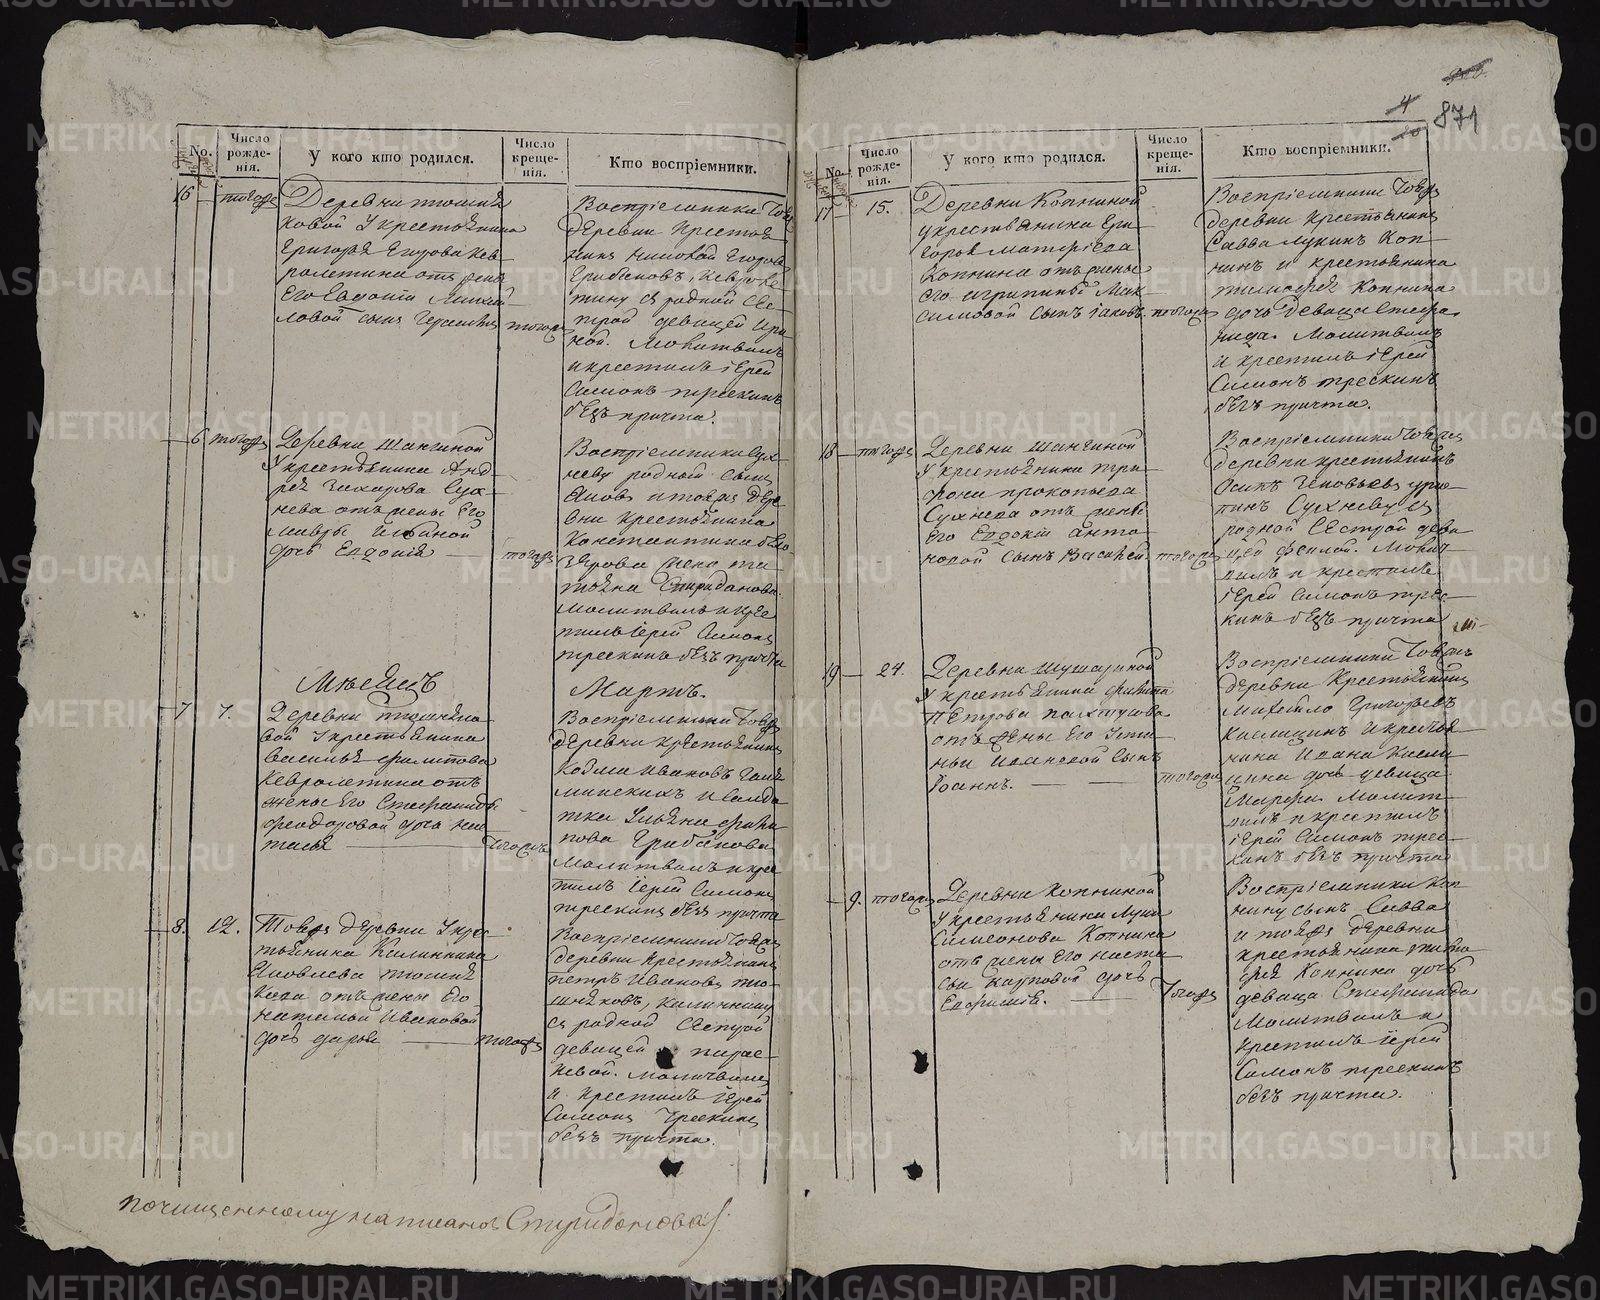 871
No.
Число рожденія.
У кого кто родился.
Число крещенія.
Кто воспріемники.
16 — тогожъ
Деревни Тюшня
ковой У крестьянина
Григорья Егорова Кев
ролетина отъ жены
Его Евдокіи Михай
ловой сынъ Герасимъ тогожъ
Воспріемники тояжъ
деревни Крестья
нинъ
Грибановъ, Кевроле
тину ся родной Сес
трой девицей Ири
ной. Молитвилъ
и крестилъ іерей
Симонъ Трескинъ
безъ причта.
6 тогожъ
Деревни Шангиной
У крестьянина Анд
рея Захарова Сух
нева отъ жены Его
Мавры
дочь Евдокія — тогожъ
Воспріемники Сух
неву родной сынъ
Яковъ и тояжъ дере
вни Крестьянина
Константина
жена Та
тьяна Спиридонова
Молитвилъ и кре
тилъ іерей Симонъ
Трескинъ безъ причта
Мѣсяцъ
Мартъ.
7 7.
Деревни Тюшняко
вой У крестьянина
Василья Филипова
Кевролетина отъ
жены Его Стефаниды
Феодоровой дочь На
талья — тогожъ
Воспріемники тояжъ
деревни крестьянинъ
Козма Ивановъ
и Солда
тка Ульяна
пова Грибанова
Молитвилъ и кре
тилъ іерей Симонъ
Трескинъ безъ причта
8. 12.
Тояжъ деревни У крес
тьянина Калинника
Яковлева Тюшня
кова отъ жены Его
Натальи Ивановой
дочь Дарья — тогожъ
Воспріемники тояжъ
деревни Крестьянинъ
Петръ Ивановъ Тю
шняковъ, Калиннику
ся родной Сестрой
девицей Парас
кевой. Молитвилъ
и крестилъ іерей
Симонъ Трескинъ
безъ причта.
почищенному написано Спиридонова
No.
Число рожденія.
У кого кто родился.
Число крещенія.
Кто воспріемники.
17 — 15.
Деревни Копниной
у крестьянина Гри
горья Матфіева
Копнина отъ жены
его Агрипины Мак
симовой сынъ Іаковъ тогожъ
Воспріемники тояжъ
деревни Крестьянинъ
Савва Лукинъ Коп
нинъ и крестьянина
Тимофея Копнина
дочь девица Стефа
нида. Молитвилъ
и крестилъ іерей
Симонъ Трескинъ
безъ причта.
18 — тогожъ
Деревни Шангиной
У крестьянина Три
фона Прокопьева
Сухнева отъ жены
Его Евдокіи Анто
новой Сынъ Василей тогожъ
Воспріемники тояжъ
деревни крестьянинъ
Осипъ Зиновьевъ
Сухневу ся
родной Сестрой деви
цей Молит
вилъ и крестилъ
іерей Симонъ Трес
кинъ безъ причта
19 — 24.
Деревни Шушариной
У крестьянина Филипа
Петрова Пахтусова
отъ жены Его Усти
ньи Ивановой Сынъ
Іоаннъ. — тогожъ
Воспріемники тояжъ
деревни Крестьянинъ
Михайло Григорьевъ
и крестья
нина Ивана
дочь девица
Марфа. Молит
вилъ и крестилъ
іерей Симонъ Трес
кинъ безъ причта
9. тогожъ
Деревни Копниной
У крестьянина Луки
Симеонова Копнина
отъ жены Его Наста
сьи Карповой дочь
Евфимія. — тогожъ
Воспріемники Коп
нину сынъ Савва
и тояжъ деревни
крестьянина Тимо
фея Копнина дочь
девица Стефанида
Молитвилъ и
Крестилъ Іерей
Симонъ Трескинъ
безъ причта.
METRIKI.GASO-URAL.RU